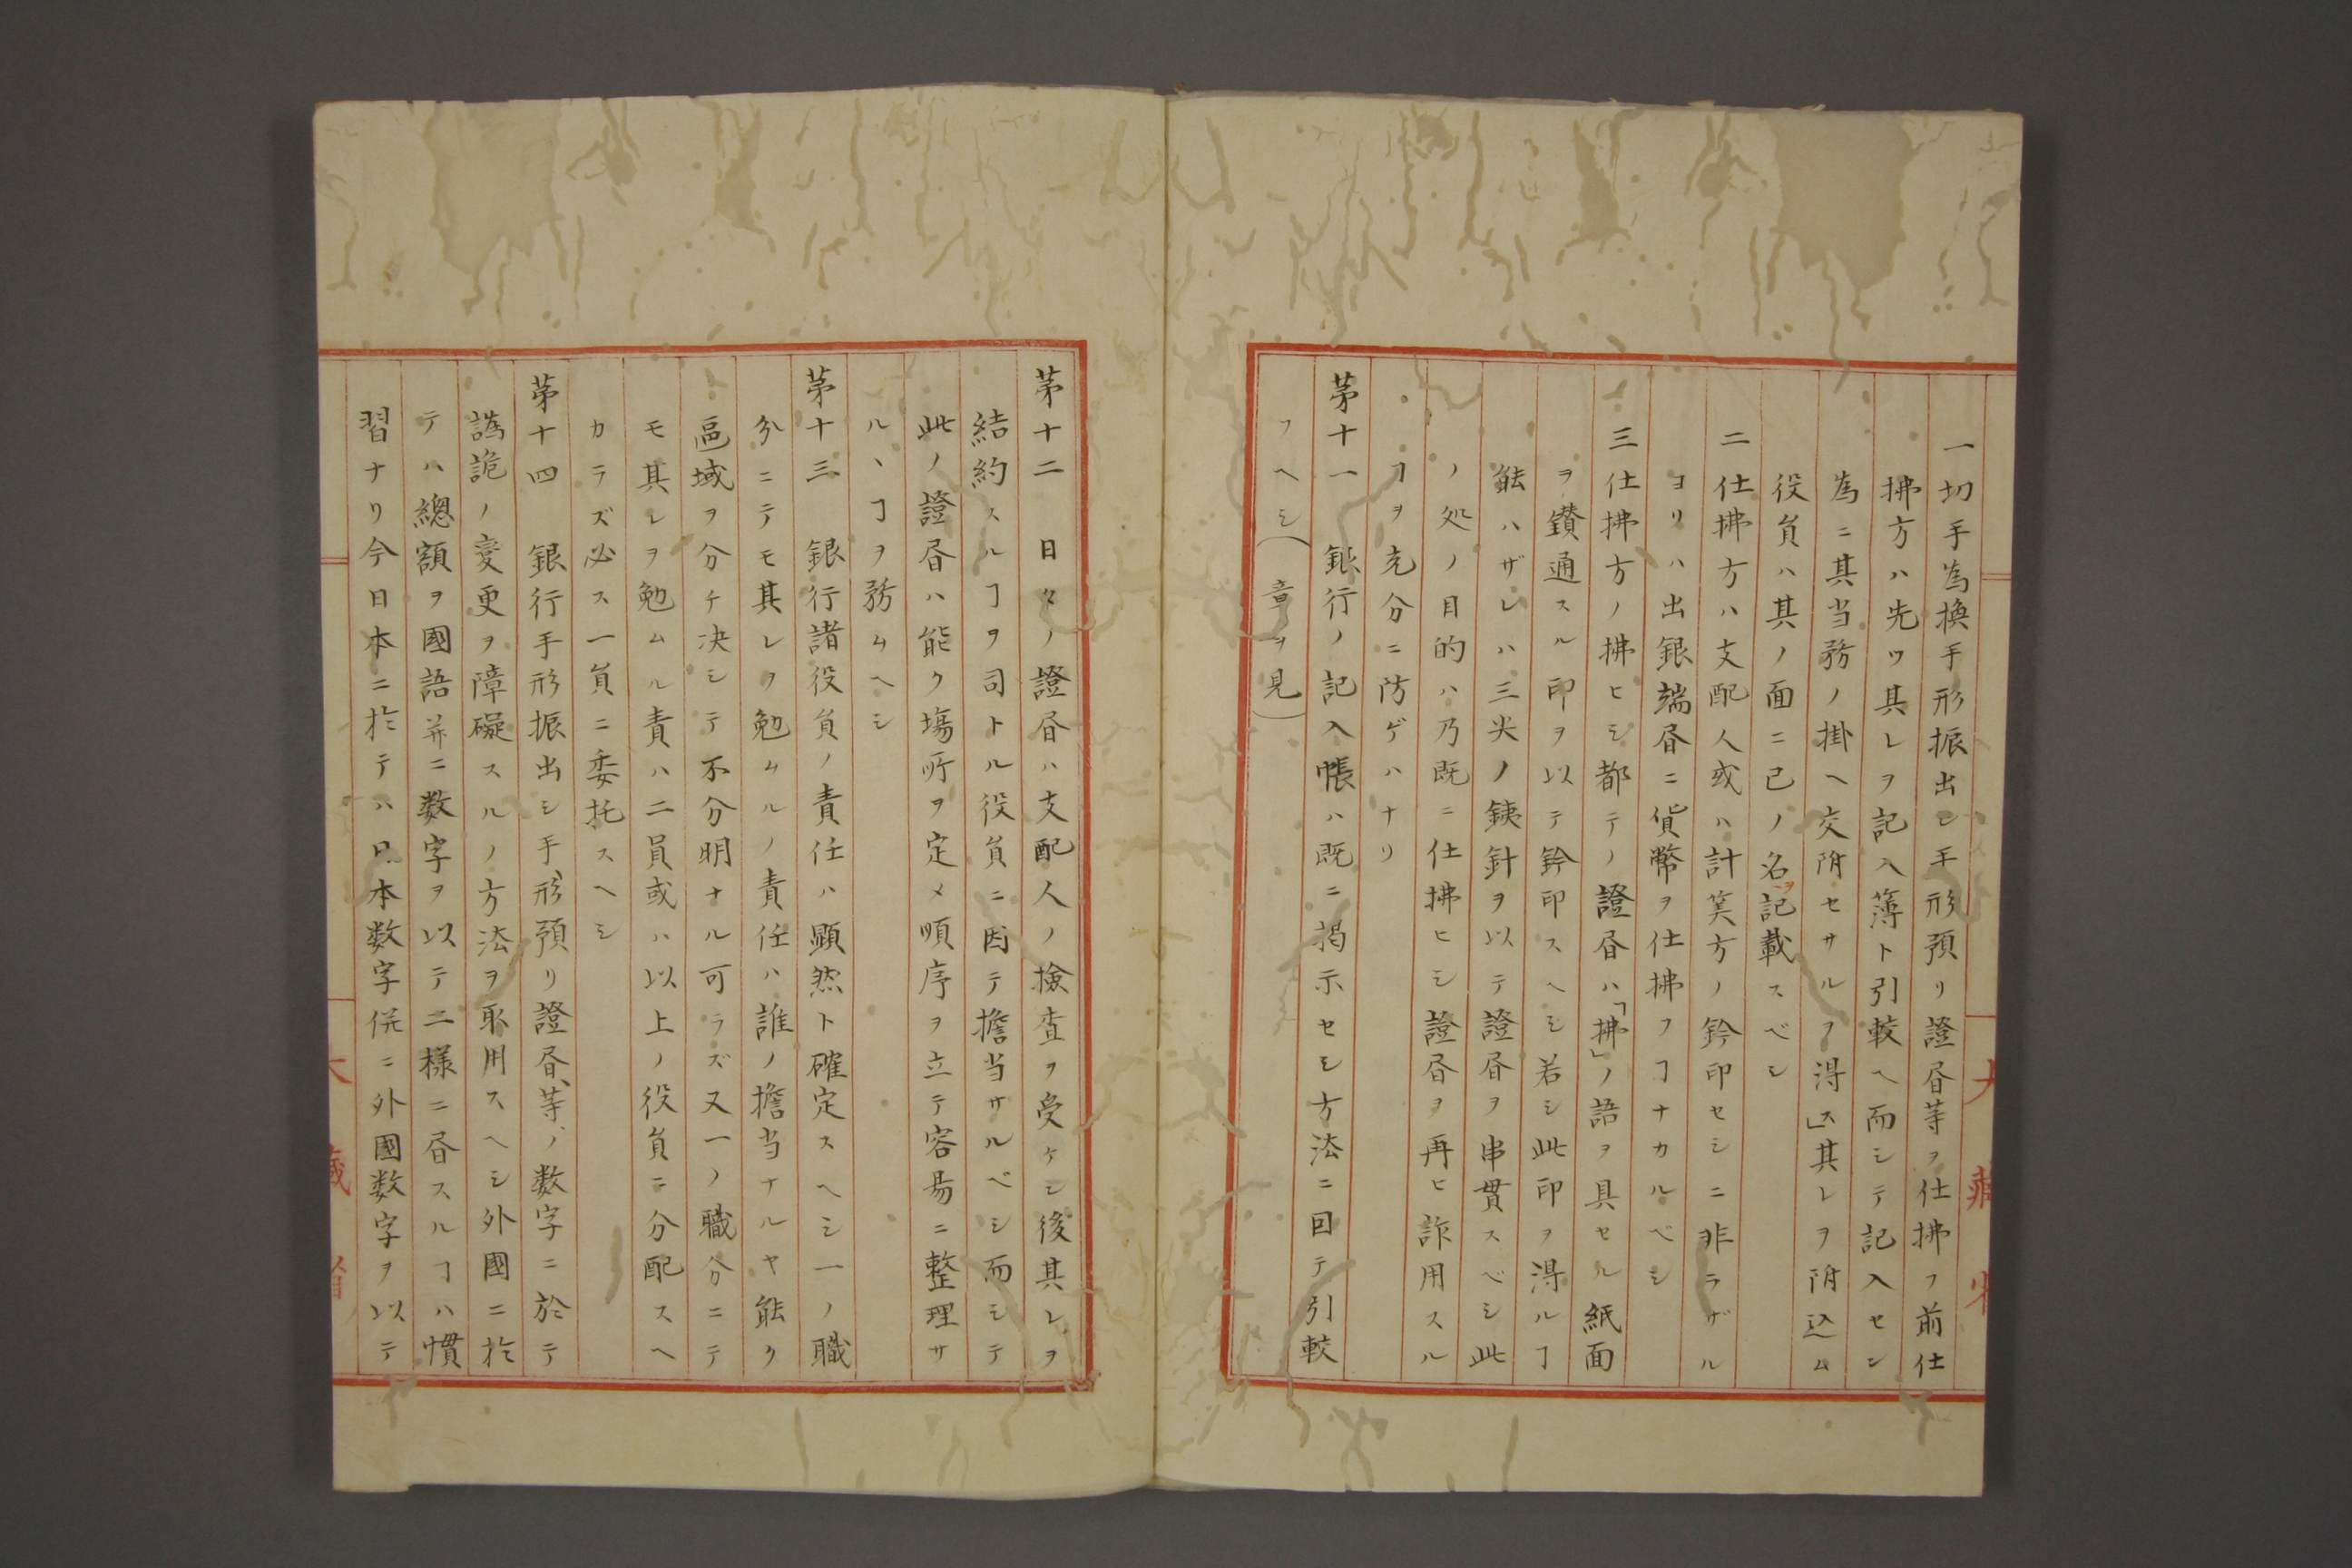 一切手為換手形振出シ手形預リ證書等ヲ仕拂フ前仕
拂方ハ先ツ其レヲ記入簿ト引較ヘ而シテ記入セン
為ニ其当務ノ掛ヘ交附セサルヲ得」ス其レヲ附込ム
役員ハ其ノ面ニ己ノ名ヲ記載スベシ
二仕拂方ハ支配人或ハ計筭方ノ鈐印セシニ非ラザル
ヨリハ出銀端書ニ貨幣ヲ仕拂フヿナカルベシ
三仕拂方ノ拂ヒシ都テノ證書ハ「拂」ノ語ヲ具セル紙面
ヲ鑚通スル印ヲ以テ鈐印スヘシ若シ此印ヲ得ルヿ
能ハザレハ三尖ノ銕針ヲ以テ證書ヲ串貫スベシ此
ノ処ノ目的ハ乃既ニ仕拂ヒシ證書ヲ再ヒ詐用スル
ヿヲ充分ニ防ゲハナリ
苐十一 銀行ノ記入帳ハ既ニ掲示セシ方法ニ回テ引較
フヘシ(章ヲ見)
苐十二 日々ノ證書ハ支配人ノ撿査ヲ受ケシ後其レヲ
結約スルヿヲ司トル役員ニ因テ擔当サルベシ而シテ
此ノ證書ハ能ク塲所ヲ定メ順序ヲ立テ容易ニ整理サ
ルヽヿヲ務ムヘシ
苐十三 銀行諸役員ノ責任ハ顕然ト確定スヘシ一ノ職
分ニテモ其レヲ勉ムルノ責任ハ誰ノ擔当ナルヤ能ク
區域ヲ分チ决シテ不分明ナル可ラズ又一ノ職分ニテ
モ其レヲ勉ムル責ハ二員或ハ以上ノ役員ニ分配スヘ
カラズ必ス一員ニ委托スヘシ
苐十四 銀行手形振出シ手形預リ證書等ノ数字ニ於テ
譌詭ノ変更ヲ障礙スルノ方法ヲ取用スヘシ外國ニ於
テハ總額ヲ國語并ニ数字ヲ以テ二様ニ書スルヿハ慣
習ナリ今日本ニ於テハ日本数字併ニ外國数字ヲ以テ
大藏省